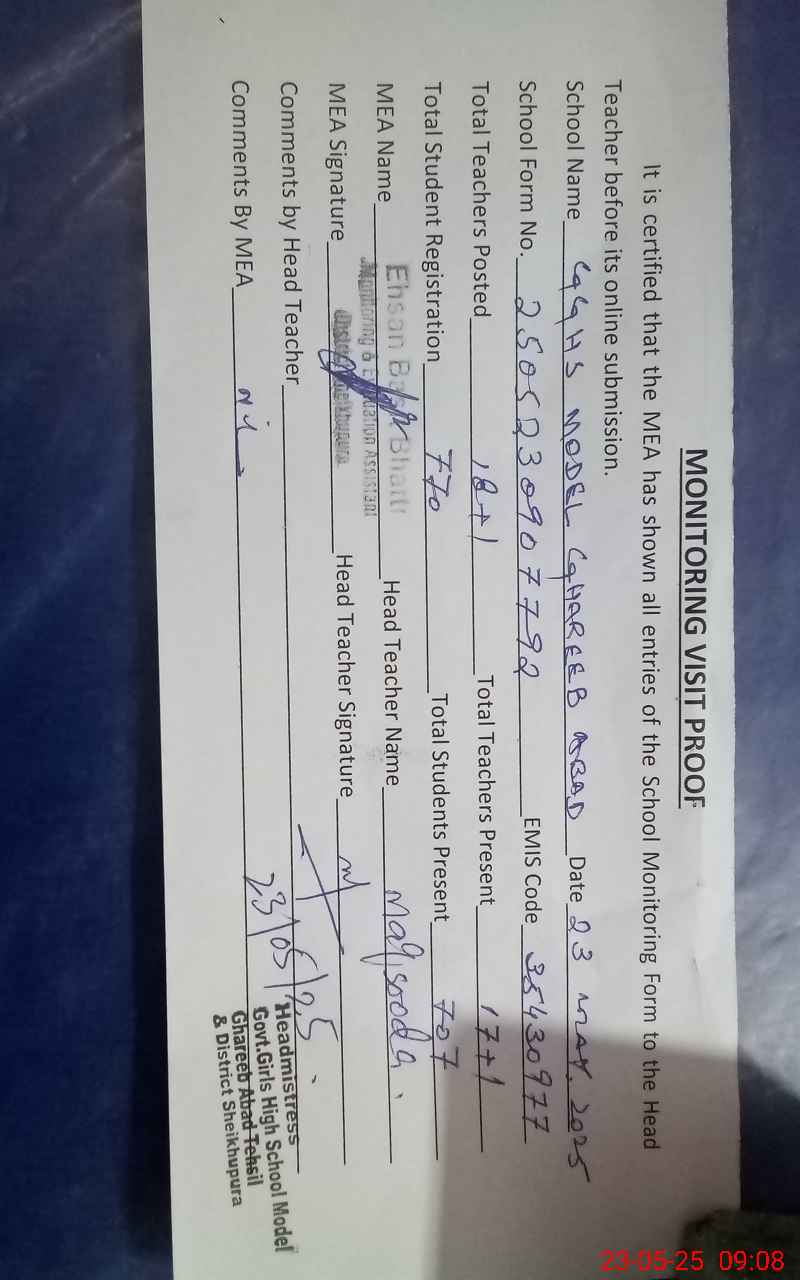 MONITORING VISIT PROOF
It is certified that the MEA has shown all entries of the School Monitoring Form to the Head
Teacher before its online submission.
School Name GGHS MODEL GHAREEB ABAD Date 23 MAY. 2025
School Form No. 2505230907792 EMIS Code 35430977
Total Teachers Posted 18+1 Total Teachers Present 17+1
Total Student Registration 770 Total Students Present 707
MEA Name Ehsan Bhatti Head Teacher Name Maqsooda
Monitoring & Evaluation Assistant
MEA Signature Head Teacher Signature
Comments by Head Teacher
23/05/25
Comments By MEA Nil
Headmistress
Govt.Girls High School Model
Ghareeb Abad Tehsil
& District Sheikhupura
23-05-25 09:08